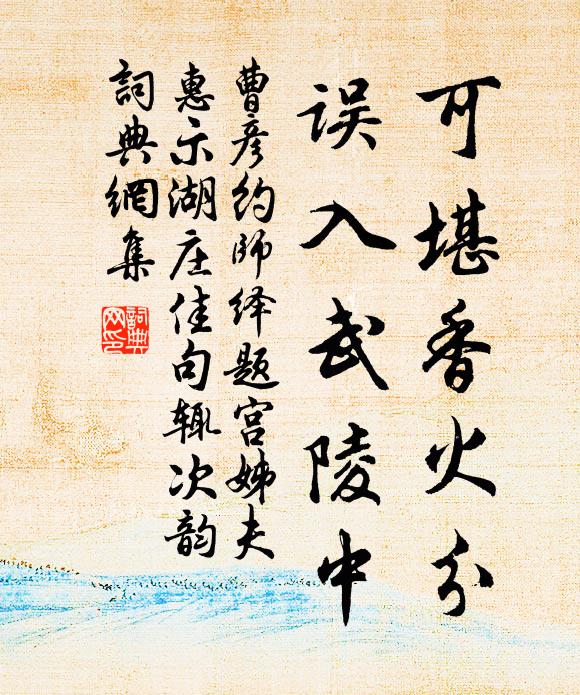 可堪香火分
误入武陵中
曹彦约师绎题宫姊夫
惠示湖庄佳句辄次韵
詞典網集
詞典
网印